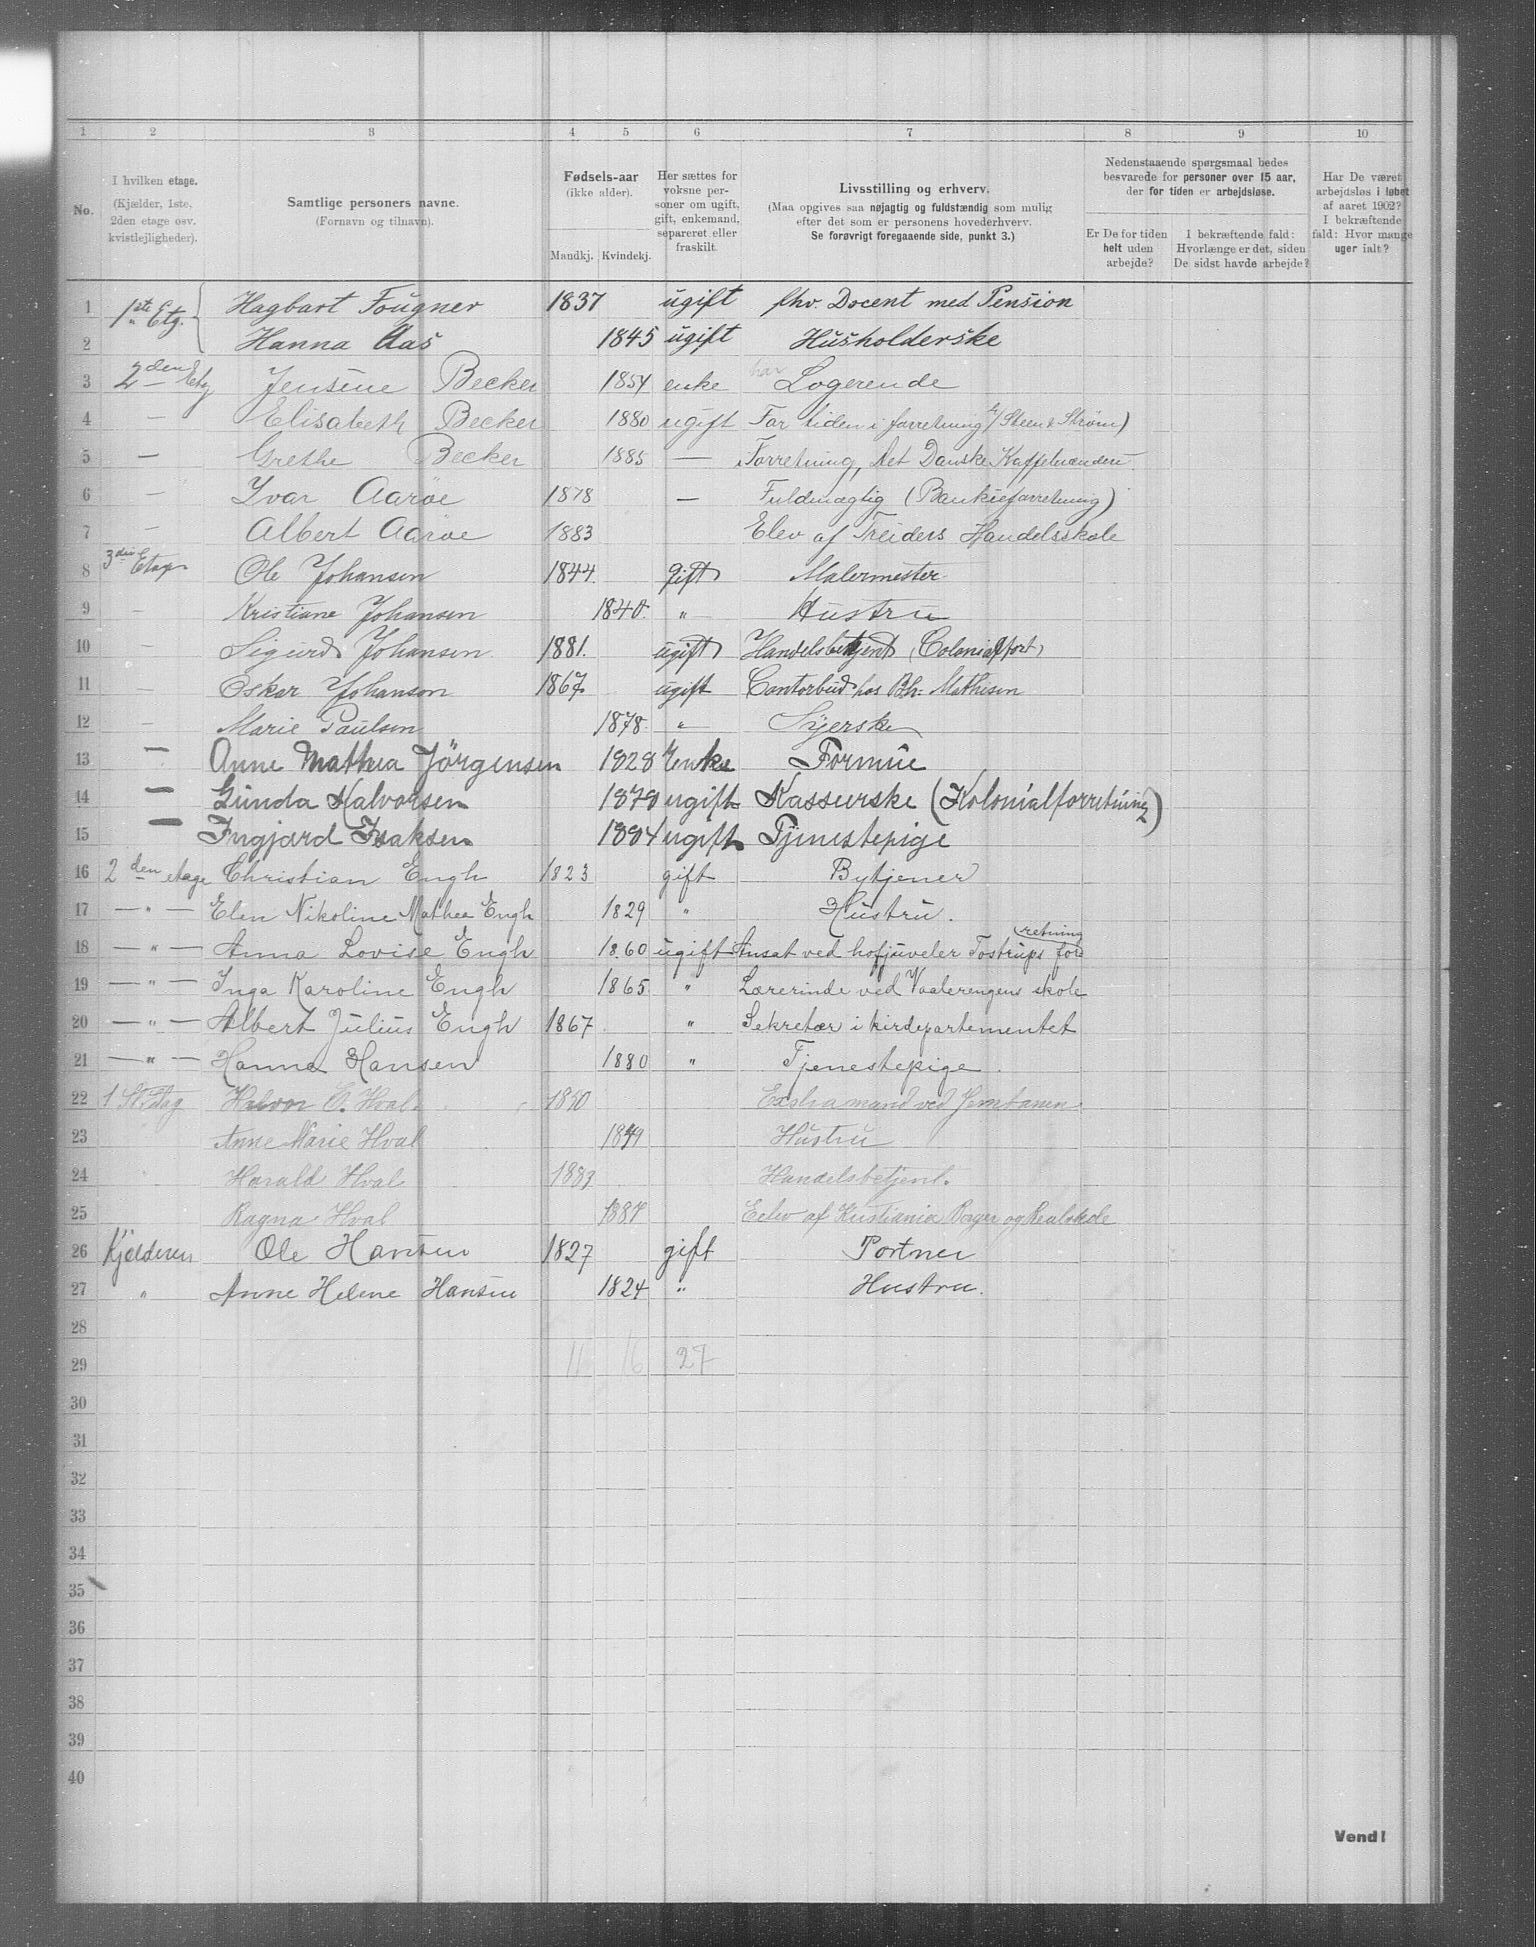 1 2 3 4 5 6 7 8 9 10
No.
I hvilken etage.
(Kjælder, 1ste,
2den etage osv.
kvistlejligheder).
Samtlige personers navne.
(Fornavn og tilnavn).
Fødsels-aar
(ikke alder).
Mandkj. Kvindekj.
Her sættes for
voksne per-
soner om ugift,
gift, enkemand,
separeret eller
fraskilt.
Livsstilling og erhverv.
(Maa opgives saa nøjagtig og fuldstændig som mulig
efter det som er personens hovederhverv.
Se forøvrigt foregaaende side, punkt 3.)
Nedenstaaende spørgsmaal bedes
besvarede for personer over 15 aar,
der for tiden er arbejdsløse.
Er De for tiden
helt uden
arbejde?
I bekræftende fald:
Hvorlænge er det, siden
De sidst havde arbejde?
Har De været
arbejdsløs i løbet
af aaret 1902?
I bekræftende
fald: Hvor mange
uger ialt?
1 1ste Etg. Hagbart Fougner 1837 ugift fhv. Docent med Pension
2 Hanna Aas 1845 ugift Husholderske
3 2den Etg Jensine Becker 1854 enke har Logerende
4 — Elisabeth Becker 1880 ugift For tiden i forretning (Steen & Strøm)
5 — Grethe Becker 1885 — Forretning, Det Danske
6 — Ivar Aarøe 1878 — Fuldmægtig (Bankieforretning)
7 — Albert Aarøe 1883 Elev af Treiders Handelsskole
8 3die Etage Ole Johansen 1844. Gift Malermester
9 — Kristiane Johansen 1840. " Hustru
10 — Sigurd Johansen 1881. ugift Handelsbetjent (Colonialfort)
11 — Oskar Johanson 1867 ugift Contorbud hos Bh. Mathisen
12 — Marie Paulsen 1878. " Syerske
13 — Anne Mathea Jörgensen 1828 Enke Formue
14 — Gunda Halvorsen 1878 ugift Kasserske (Kolonialforretning)
15 — Ingjard Isaksen 1884 ugift Tjenestepige
16 2den etage Christian Engh 1823 gift Bytjener
17 — " — Elen Nikoline Mathea Engh 1829 " Hustru.
18 — " — Anna Lovise Engh 1860 ugift Ansat ved hofjuveler Tostrups for
retning
19 — " — Inga Karoline Engh 1865 " Lærerinde ved Vaalerengens skole
20 — " — Albert Julius Engh 1867 " Sekretær i kirdepartementet
21 — " — Hanna Hansen 1880 " Tjenestepige.
22 1 St Etag Halvor E. Hval. 1850 Exstramand ved Jernbanen
23 Anne Marie Hval 1849 Hustru
24 Harald Hval 1883 Handelsbetjent.
25 Ragna Hval 1887 Eelev af Kristiania Borger og Realskole
26 Kjelderen Ole Hansen 1827 gift Portner
27 " Anne Helene Hansen 1824 " Hustru.
28
29 11 16 27
30
31
32
33
34
35
36
37
38
39
40
Vend!